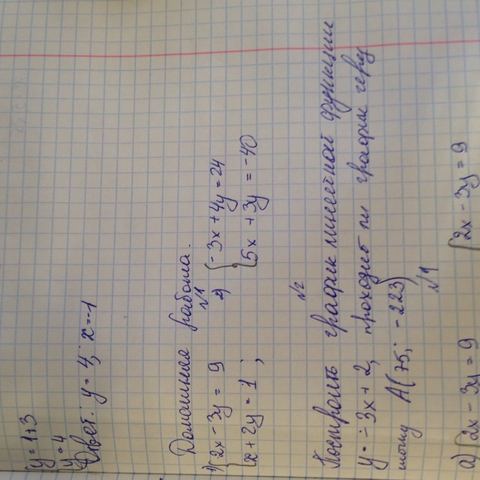 y = 1+3
y = 4
Ответ: y = 4; x = -1
Домашняя работа.
№1
1) { 2x - 3y = 9
x + 2y = 1 ;
2) { -3x + 4y = 24
5x + 3y = -40
№2
Построить график линейной функции
y = -3x + 2, проходит ли график через
точку А(75; -223)
№1
а) { 2x - 3y = 9
{ 2x - 3y = 9